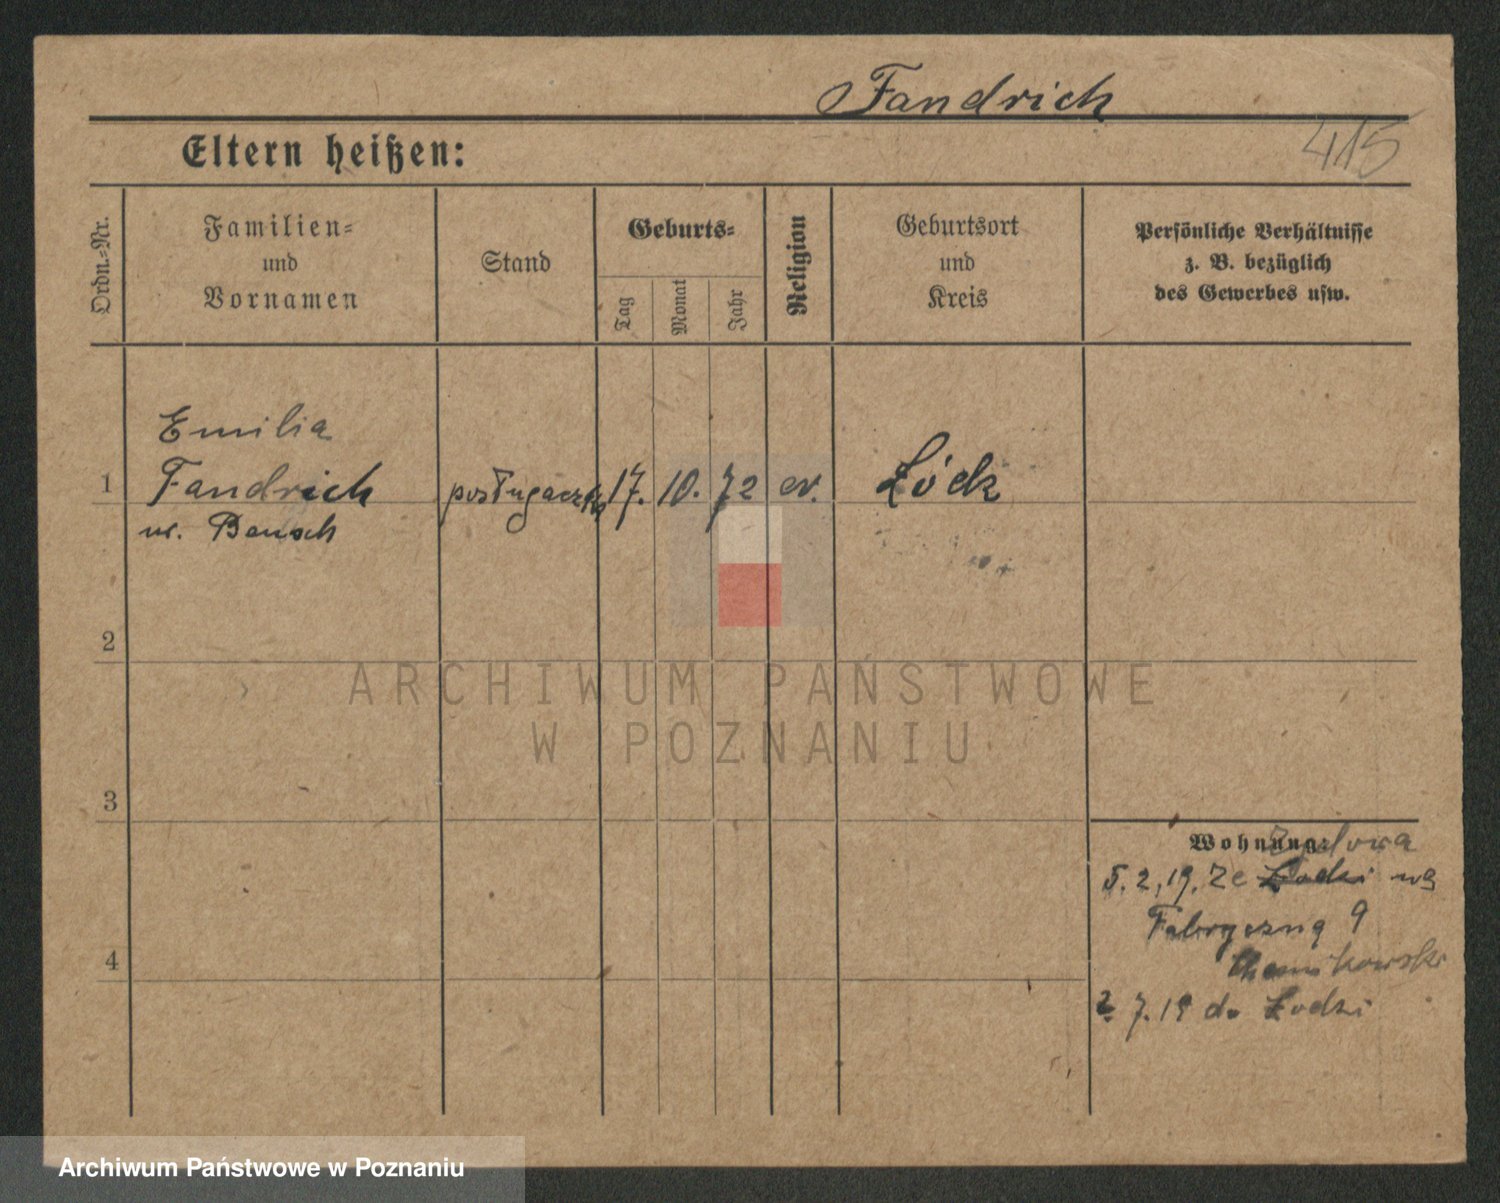 Fandrich
415
Eltern heißen:
Ordn.-Nr.
Familien-
und
Vornamen
Stand
Geburts-
Tag
Monat
Jahr
Religion
Geburtsort
und
Kreis
Persönliche Verhältnisse
z. B. bezüglich
des Gewerbes usw.
Emilia
1 Fandrich posługaczka 17. 10. 72 ev. Łódz
ur. Bensch
2
3
4
Wohnung:
5. 2. 19. Ze Łodzi na
Fabryczną 9
2. 7. 19 do Łodzi
ARCHIWUM PAŃSTWOWE
W POZNANIU
Archiwum Państwowe w Poznaniu